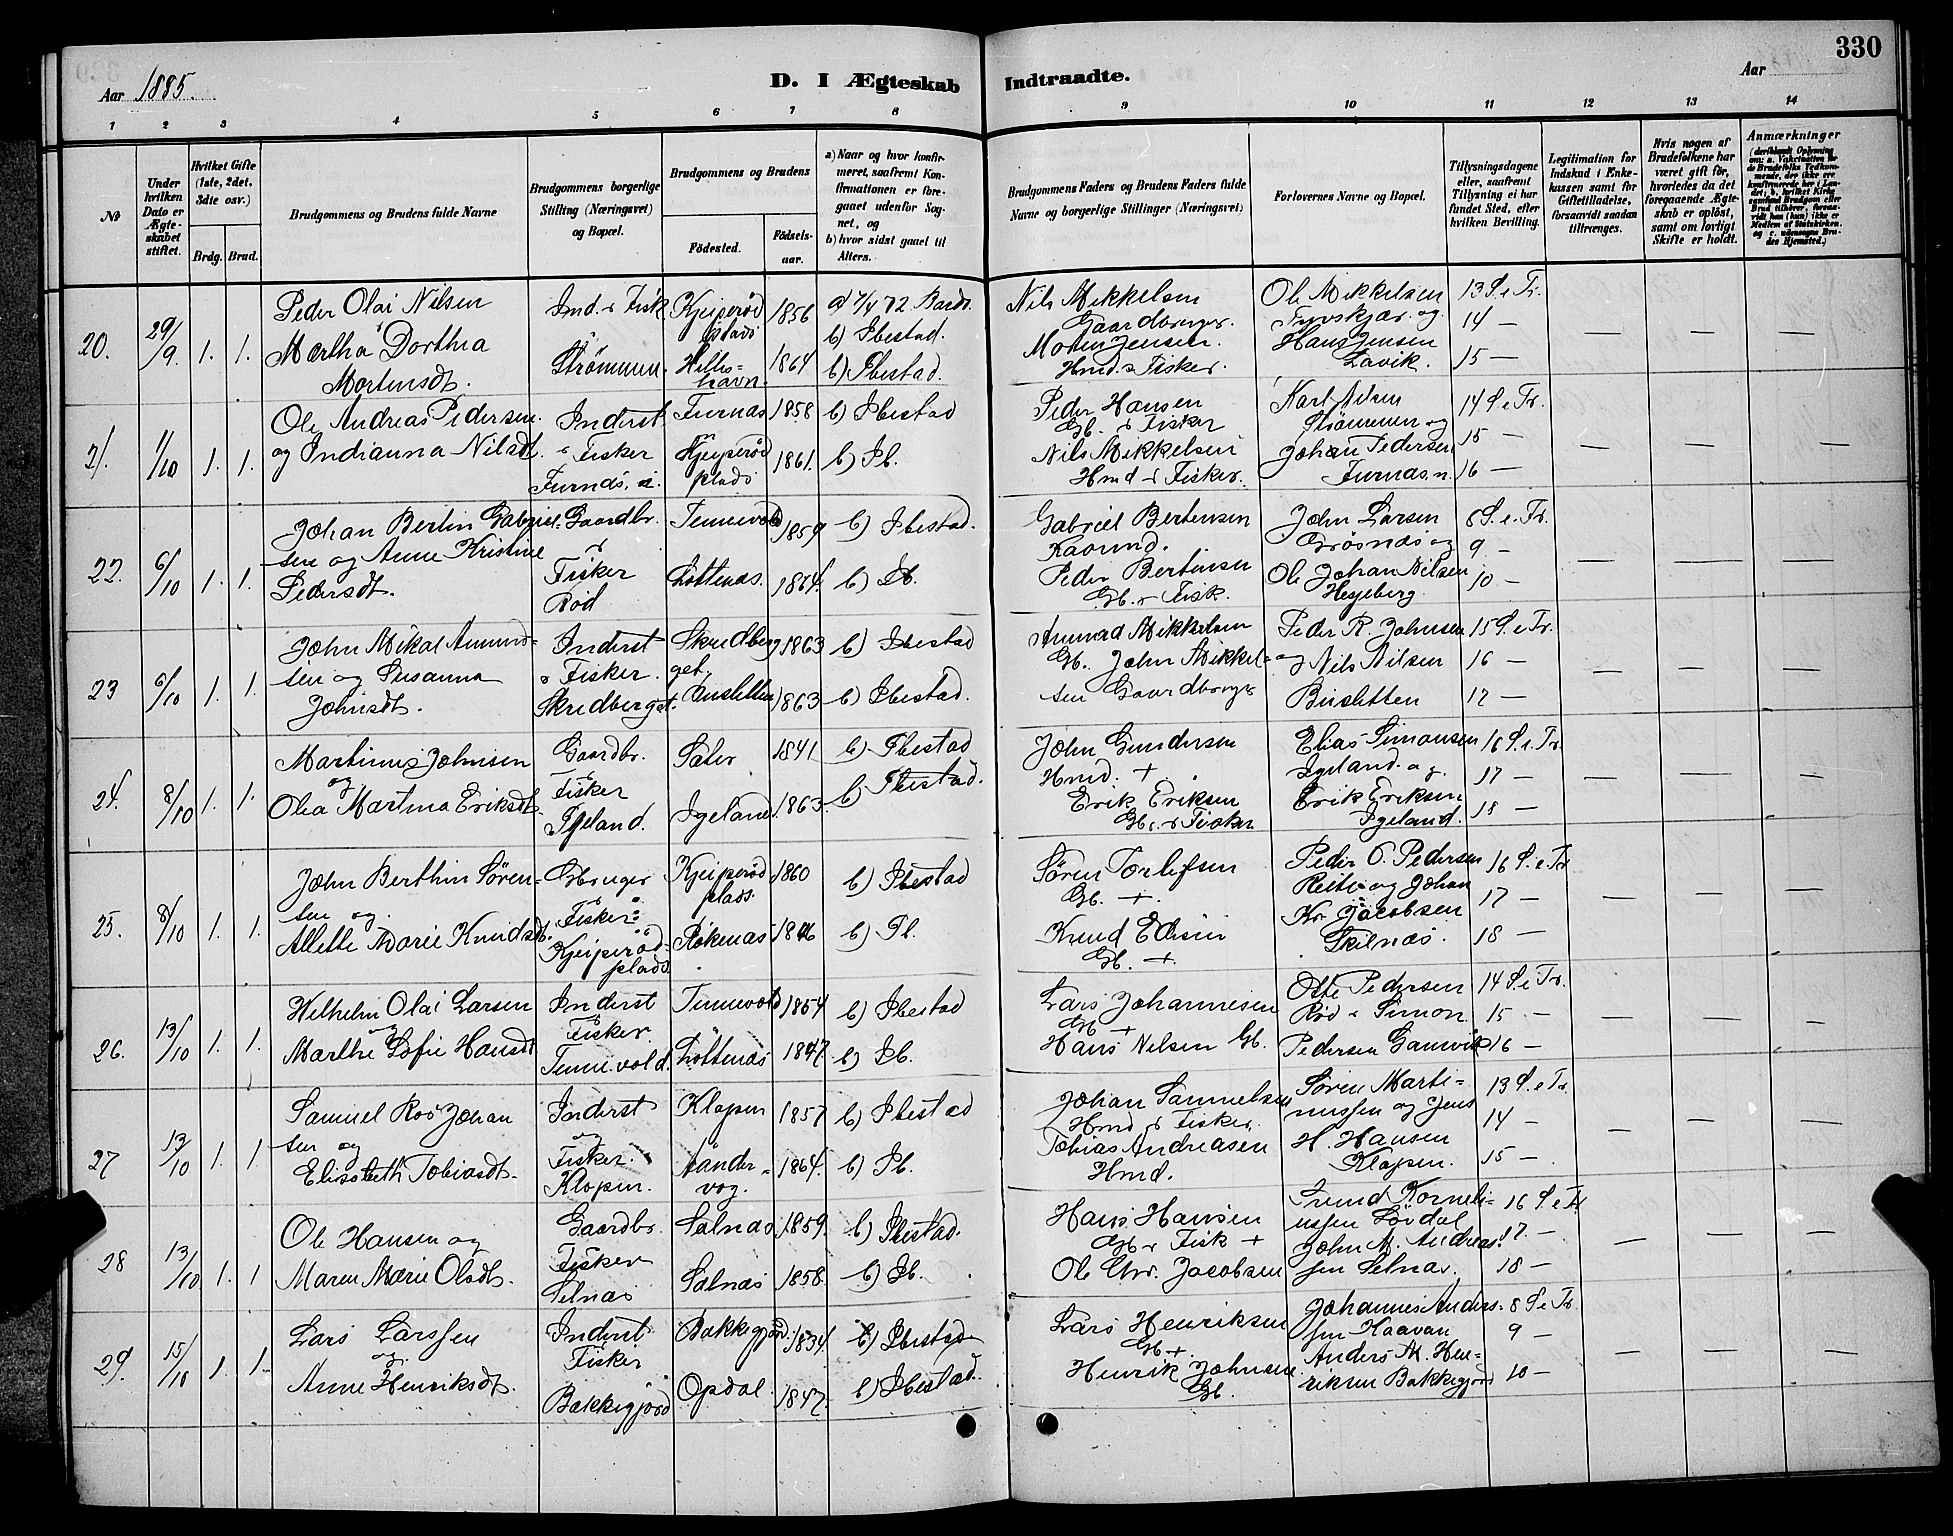 330
Aar 1885.
D. I Ægteskab Indtraadte.
Aar
1 2 3 4 5 6 7 8 9 10 11 12 13 14
№
Under hvilken Dato er Ægteskabet stiftet.
Hvilket Gifte (1ste, 2det, 3die osv.)
Brdg. Brud.
Brudgommens og Brudens fulde Navne
Brudgommens borgerlige Stilling (Næringsvei) og Bopæl.
Brudgommens og Brudens
Födested.
Födselsaar.
a) Naar og hvor konfirmeret, saafremt Konfirmationen er foregaaet udenfor Sognet, og
b) hvor sidst gaaet til Alters.
Brudgommens Faders og Brudens Faders fulde Navne og borgerlige Stillinger (Næringsvei)
Forlovernes Navne og Bopæl.
Tillysningsdagene eller, saafremt Tillysning ei har fundet Sted, efter hvilken Bevilling.
Legitimation for Indskud i Enkekassen samt for Giftetilladelse, forsaavidt saadan tiltrænges.
Hvis nogen af Brudefolkene har været gift för, hvorledes da det foregaaende Ægteskab er oplöst, samt om lovligt Skifte er holdt.
Anmærkninger
20. 29/9 1. 1.
Peder Olai Nilsen
Martha Dorthea
Mortensdt.
Ind. & Fisk.
Strømmen.
Kjeiperöd plads 1856
Hellishavn. 1864
a) 7/4 72 Bardo.
b) Ibestad.
b) Ibestad.
Nils Mikkelsen
Gaardbruger.
Morten Jensen.
Hmd. & Fisker.
Ole Mikkelsen
Tyvskjær. og
Hans Jensen
Lavik.
13 S. e Tr.
14 —
15 —
21. 1/10 1. 1.
Ole Andreas Pedersen
og Indianna Nilsdt.
Inderst
& Fisker
Furnæs.
Furnæs 1858
Kjeiperöd plads 1861.
b) Ibestad
b) Ib.
Peder Hansen
Gb. & Fisker
Nils Mikkelsen
Hmd & Fisker.
Karl Nilsen
Strømmen og
Johan Pedersen
Furnæs.
14 S. e Tr.
15 —
16 —
22. 6/10 1. 1.
Johan Bertin Gabriel-
sen og Anne Kristine
Pedersdt.
Gaardbr.
&
Fisker
Röd
Tennevold 1859
Löttenæs. 1864.
b) Ibestad.
b) Ib.
Gabriel Bertensen
Kaarmd.
Peder Bertensen
Gb. & Fisk.
John Larsen
Grøsnæs og
Ole Johan Nilsen
Hesjeberg
8 S. e. Tr.
9 —
10 —
23 6/10 1. 1.
John Mikal Amund-
sen og Susanna
Johnsdt.
Inderst
& Fisker.
Skredberget.
Skredberget, 1863
Busletten 1863
b) Ibestad
b) Ibestad.
Amund Mikkelsen
Gb. John Mikkel-
sen Gaardbruger
Peder R. Johnsen
og Nils Nilsen
Busletten
15 S. e Tr.
16 —
17 —
24. 8/10 1. 1.
Martinus Johnsen
og
Olea Martina Eriksdt.
Gaardbr.
&
Fisker
Igeland.
Sæter 1841
Igeland. 1863.
b) Ibestad
b) Ibestad.
John Gundersen
Hmd. +
Erik Eriksen
Gb. & Fisker
Elias Simonsen
Igeland. og
Erik Eriksen
Igeland.
16 S. e. Tr.
17 —
18 —
25. 8/10 1. 1.
John Berthin Sören-
sen og
Allette Marie Knudsdt.
Gbruger
&
Fisker
Kjeiperöd-
plads
Kjeiperöd plads. 1860
Rökenæs 1846
b) Ibestad
b) Ib.
Sören Torlefsen
Gb. +.
Knud Edisen
Gb. +
Peder O. Pedersen
Reite og Johan
Kr. Jacobsen
Selnæs.
16 S. e Tr.
17 —
18 —
26. 13/10 1. 1.
Wilhelm Olai Larsen
og
Marthe Sofie Hansdt
Inderst
&
Fisker.
Tennevold.
Tennevold 1854
Löttenæs 1847
b) Ibestad
b) Ib.
Lars Johannesen
Gb +
Hans Nilsen Gb.
Otte Pedersen
Röd & Simon
Pedersen Gamvik
14 S. e Tr.
15 —
16 —
27 13/10 1. 1.
Samuel Roö Johan
sen og
Elisabeth Tobiasdt.
Inderst
og
Fisker
Klopen.
Klopen 1857
Aandervog. 1864.
b) Ibestad
b) Ib.
Johan Samuelsen
Hmd & Fisker
Tobias Andreasen
Hmd.
Sören Marti-
nussen og Jens
H. Hansen
Klopen.
13 S. e Tr.
14 —
15 —
28 13/10 1. 1
Ole Hansen og
Maren Marie Olsdt.
Gaardbr.
&
Fisker
Selnæs
Salnæs 1859.
Salnæs 1858.
b) Ibestad.
b) Ib.
Hans Hansen
Gb & Fisk +
Ole Chr. Jacobsen
Trend Korneli-
ussen Lövdal
John M. Andreas-
sen Selnæs.
16 S. e Tr.
17. —
18 —
29. 15/10 1. 1.
Lars Larssen
og
Anne Henriksdt.
Inderst
Fisker
Bakkegjord
Bakkegjord. 1834
Opdal. 1847.
b) Ibestad
b) Ibestad.
Lars Henriksen
Gb +
Henrik Johnsen
Gb.
Johannes Anders-
sen Haavan
Anders M. Hen-
riksen Bakkegjord
8 S. e Tr.
9 —
10 —